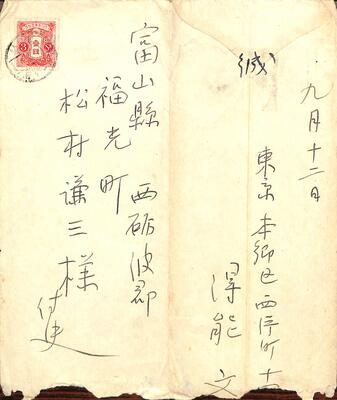 富山縣 西砺波郡
福光町
松村謙三様
緘
九月十二日
東京 本郷区 西片町十
得能 文